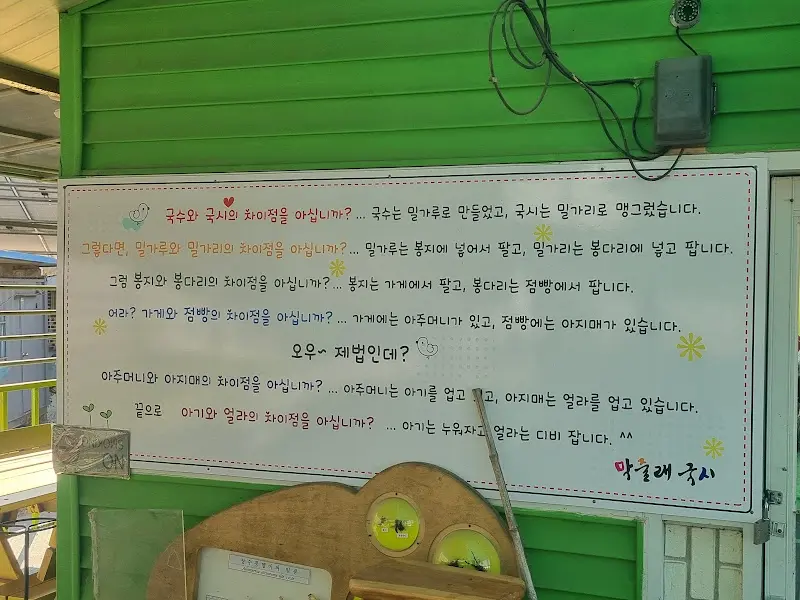 국수와 국시의 차이점을 아십니까? ... 국수는 밀가루로 만들었고, 국시는 밀가리로 맹그렀습니다.
그렇다면, 밀가루와 밀가리의 차이점을 아십니까?... 밀가루는 봉지에 넣어서 팔고, 밀가리는 봉다리에 넣고 팝니다.
그럼 봉지와 봉다리의 차이점을 아십니까?... 봉지는 가게에서 팔고, 봉다리는 점빵에서 팝니다.
어라? 가게와 점빵의 차이점을 아십니까? ... 가게에는 아주머니가 있고, 점빵에는 아지매가 있습니다.
오우~ 제법인데?
아주머니와 아지매의 차이점을 아십니까? ... 아주머니는 아기를 업고 고, 아지매는 얼라를 업고 있습니다.
끝으로 아기와 얼라의 차이점을 아십니까? ... 아기는 누워자고 얼라는 디비 잡니다. ^^
막클래 국시
ON